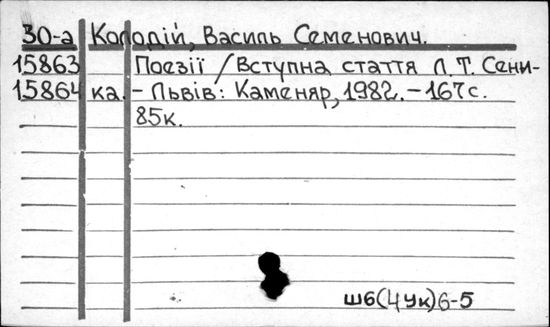 30-а Колодій, Василь Семенович.
15863 Поезії / Вступна стаття Л. Т. Сени-
15864 ка. - Львів: Каменяр, 1982. - 167с.
85к.
Ш6(4Ук)6-5